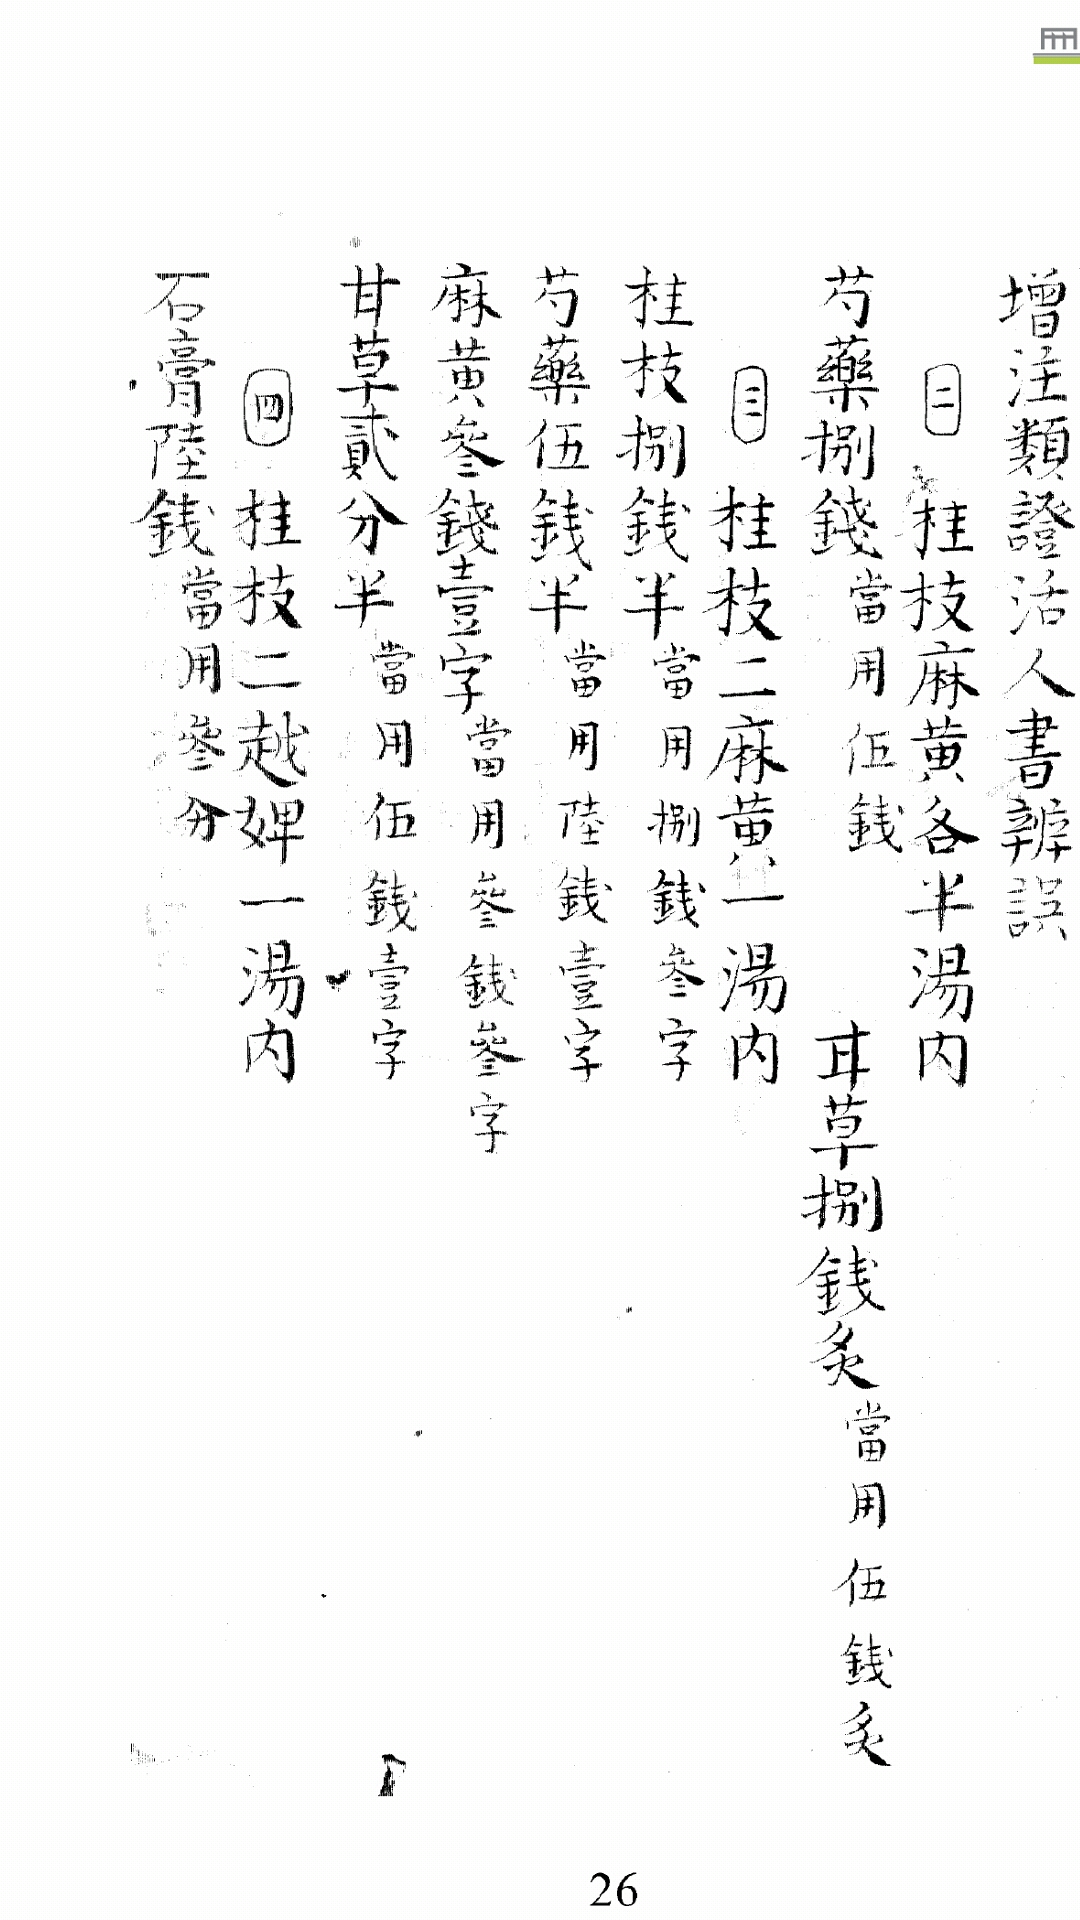 增注類證活人書辨誤
二 桂枝麻黄各半湯内
芍藥捌錢當用伍銭 甘草捌銭炙當用伍銭炙
三 桂枝二麻黄一湯内
桂枝捌銭半當用捌銭叄字
芍藥伍銭半當用陸銭壹字
麻黄叄錢壹字當用叄銭叄字
甘草貳分半當用伍銭壹字
四 桂枝二越婢一湯内
石膏陸銭當用叄分
26